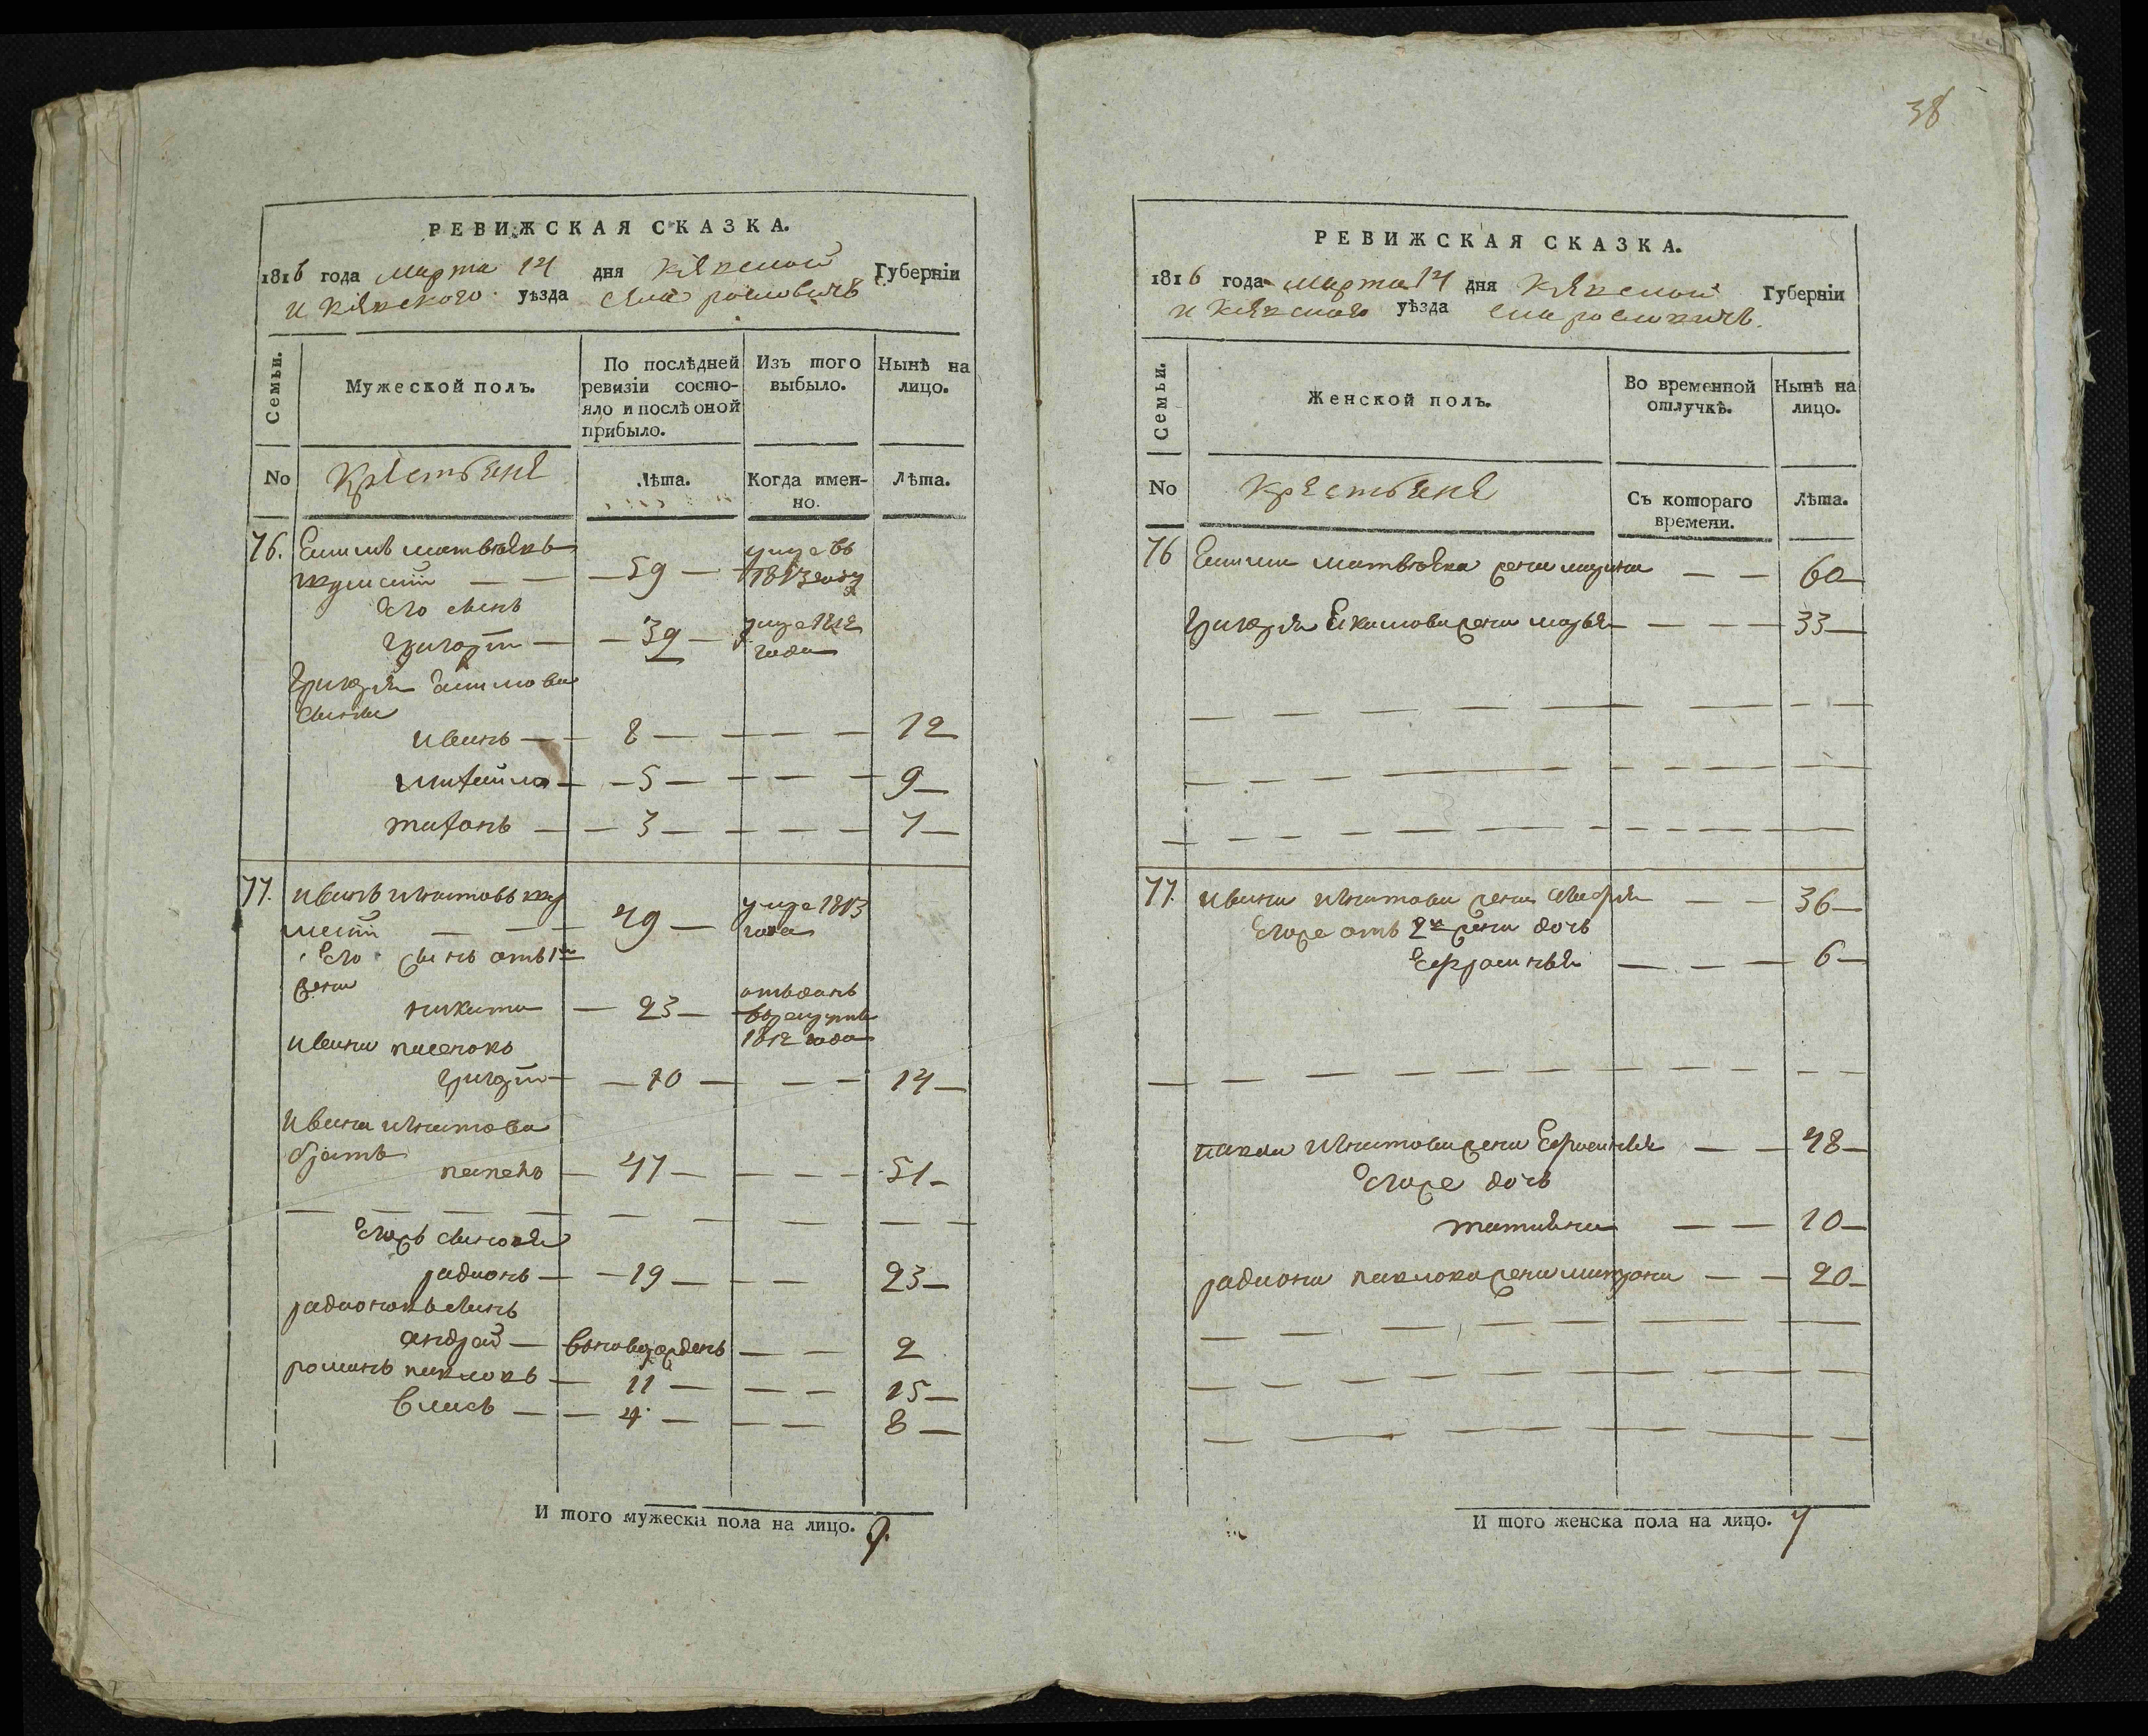 РЕВИЖСКАЯ СКАЗКА.
1816 года марта 14 дня Кіевской Губерніи
и Кіевского уѣзда села рословичъ
Семьи.
Мужеской полъ.
По послѣдней
ревизіи состо-
яло и послѣ оной
прибыло.
Изъ того
выбыло.
Нынѣ на
лицо.
No
Крестьяне
Лѣта.
Когда имен-
но.
Лѣта.
76.
— 59 —
1813 году
его сынъ
григорій — — 39 — 1812
года
сыны
иванъ — 8 — — — 12
михайло — — 5 — — — 9 —
тихонъ — — 3 — — — — 7 —
77. иванъ игнатовъ
49 — 1813
года
Его сынъ отъ 1й
жены
никита — 23 — отъданъ
в рекруты
1812 года
ивана пасенокъ
григорій — — 10 — — — 14 —
ивана игнатова
братъ
— 47 — — — 51 —
Егожъ сыновя
радионъ — — 19 — — — 23 —
радионовъ сынъ
андрей — вновь рожденъ — — 2
романъ павловъ — 11 — — — 15 —
власъ — — 4 — — — 8 —
И того мужеска пола на лицо. 9.
38
РЕВИЖСКАЯ СКАЗКА.
1816 года марта 14 дня Кіевской Губерніи
и Кіевского уѣзда села рословичъ.
Семьи.
Женской полъ.
Во временной
отлучкѣ.
Нынѣ на
лицо.
No
Крестьяне
Съ котораго
времени.
Лѣта.
76 жена марина — — 60 —
жена марья — — — 33 —
77. ивана игнатова жена — — 36 —
Егоже отъ 2й жены дочь
Ефросинья — — — 6 —
павла игнатова жена Ефросинья — — 48 —
Егоже дочь
татияна — — 10 —
радиона павлова жена матрона — — 20 —
И того женска пола на лицо. 7